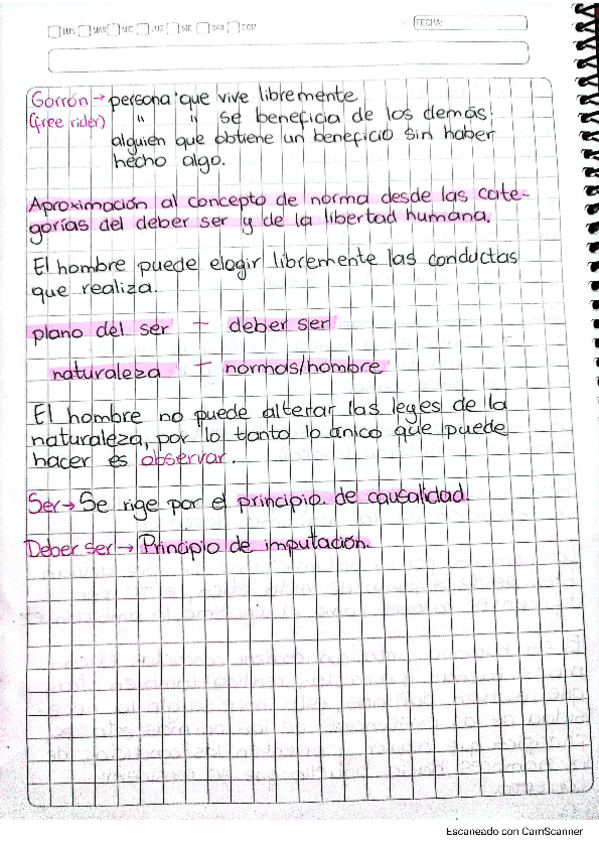 LUN MAR MIE JUE VIE SAB DOM
FECHA:
Gorrón → persona que vive libremente
(free rider) " " se beneficia de los demás:
alguien que obtiene un beneficio sin haber
hecho algo.
Aproximación al concepto de norma desde las cate-
gorías del deber ser y de la libertad humana.
El hombre puede elegir libremente las conductas
que realiza.
plano del ser — deber ser
naturaleza — normas/hombre
El hombre no puede alterar las leyes de la
naturaleza, por lo tanto lo único que puede
hacer es observar.
Ser → Se rige por el principio de causalidad.
Deber ser → Principio de imputación.
Escaneado con CamScanner